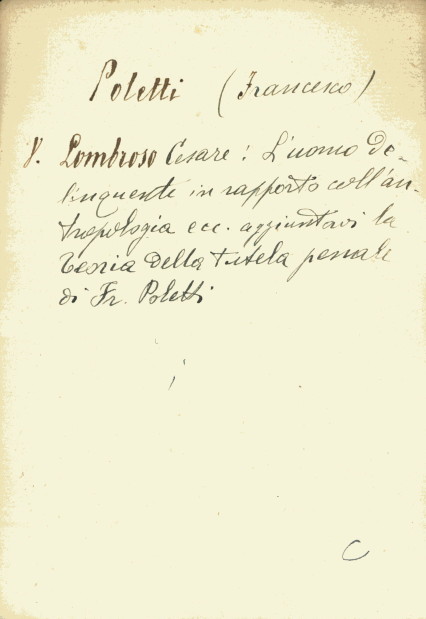 Poletti (Francesco)
V. Lombroso Cesare: L'uomo de-
linquente in rapporto coll'an-
tropologia ecc. aggiuntavi la
teoria della tutela penale
di Fr. Poletti
C